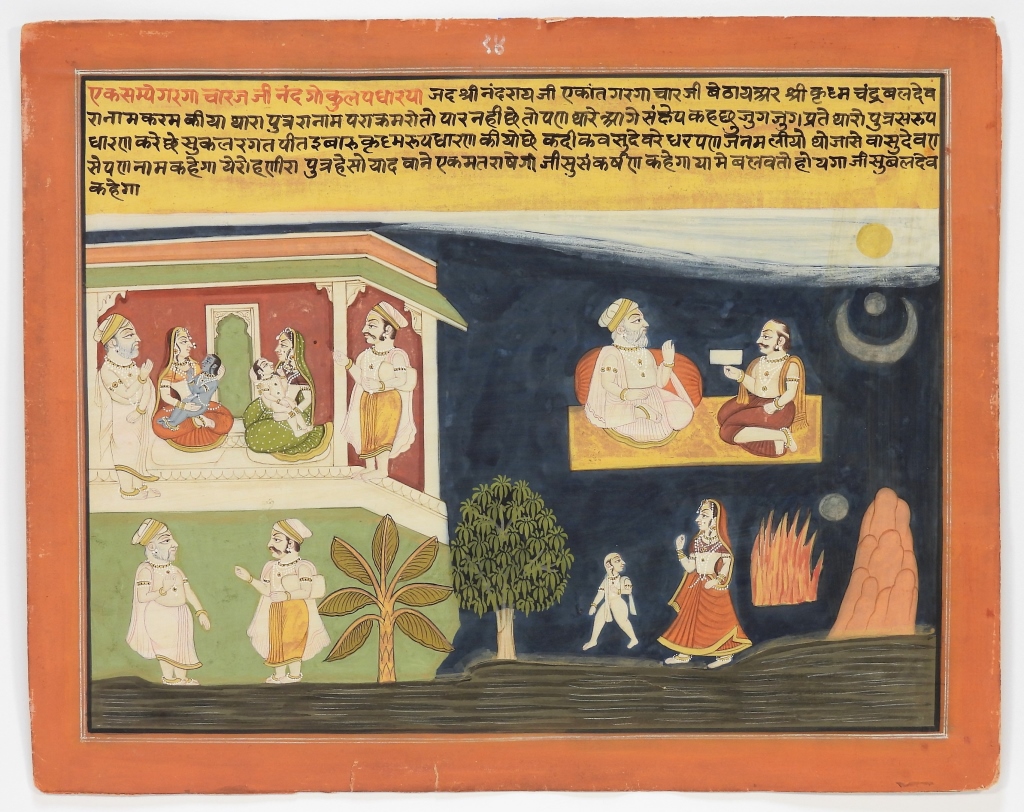 १४
एकसम्येगरगाचारजजी नंदगोकुलपधारया जद श्री नंदरायजी एकांत गरगाचारजी बेठायअर श्री कृष्म चंद्र बलदेव
रानामकरम कीया थारा पुत्र रानाम पराक्रमरोतो पार नही छे तोपण थारे आगे संक्षेप कहछु जुगजुग प्रते थारो पुत्र सरुप
धारण करे छे सुकल रगत पीत इबारु कृष्मरुपधारण कीयो छे कदीक वसुदेवरे धर पण जनम लीयो थो जासे वासुदेव पण
से पण नाम कहेगा ये रोहणीरा पुत्र हे सो यादवाने एकमत राषेगो जीसु संकर्षण कहेगा यामे बलवतो होयगा जीसु बलदेव
कहेगा